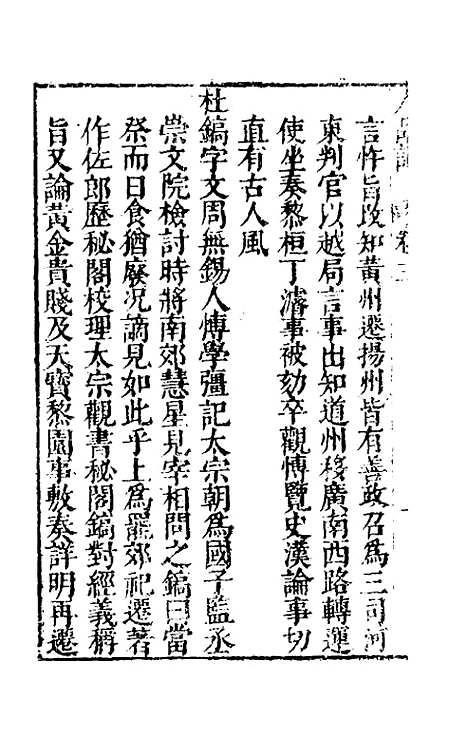 言忤旨改知黃州遷揚州皆有善政召爲三司河
東判官以越局言事出知道州移廣南西路轉運
使坐奏黎桓丁濬事被劾卒觀博覽史漢論事切
直有古人風
杜鎬字文周無錫人博學彊記太宗朝爲國子監丞
崇文院檢討時將南郊慧星見宰相問之鎬曰當
祭而日食猶廢况謫見如此乎上爲罷郊祀遷著
作佐郎歷秘閣校理太宗觀書秘閣鎬對經義稱
旨又論黃金貴賤及天寶黎園事敷奏詳明再遷